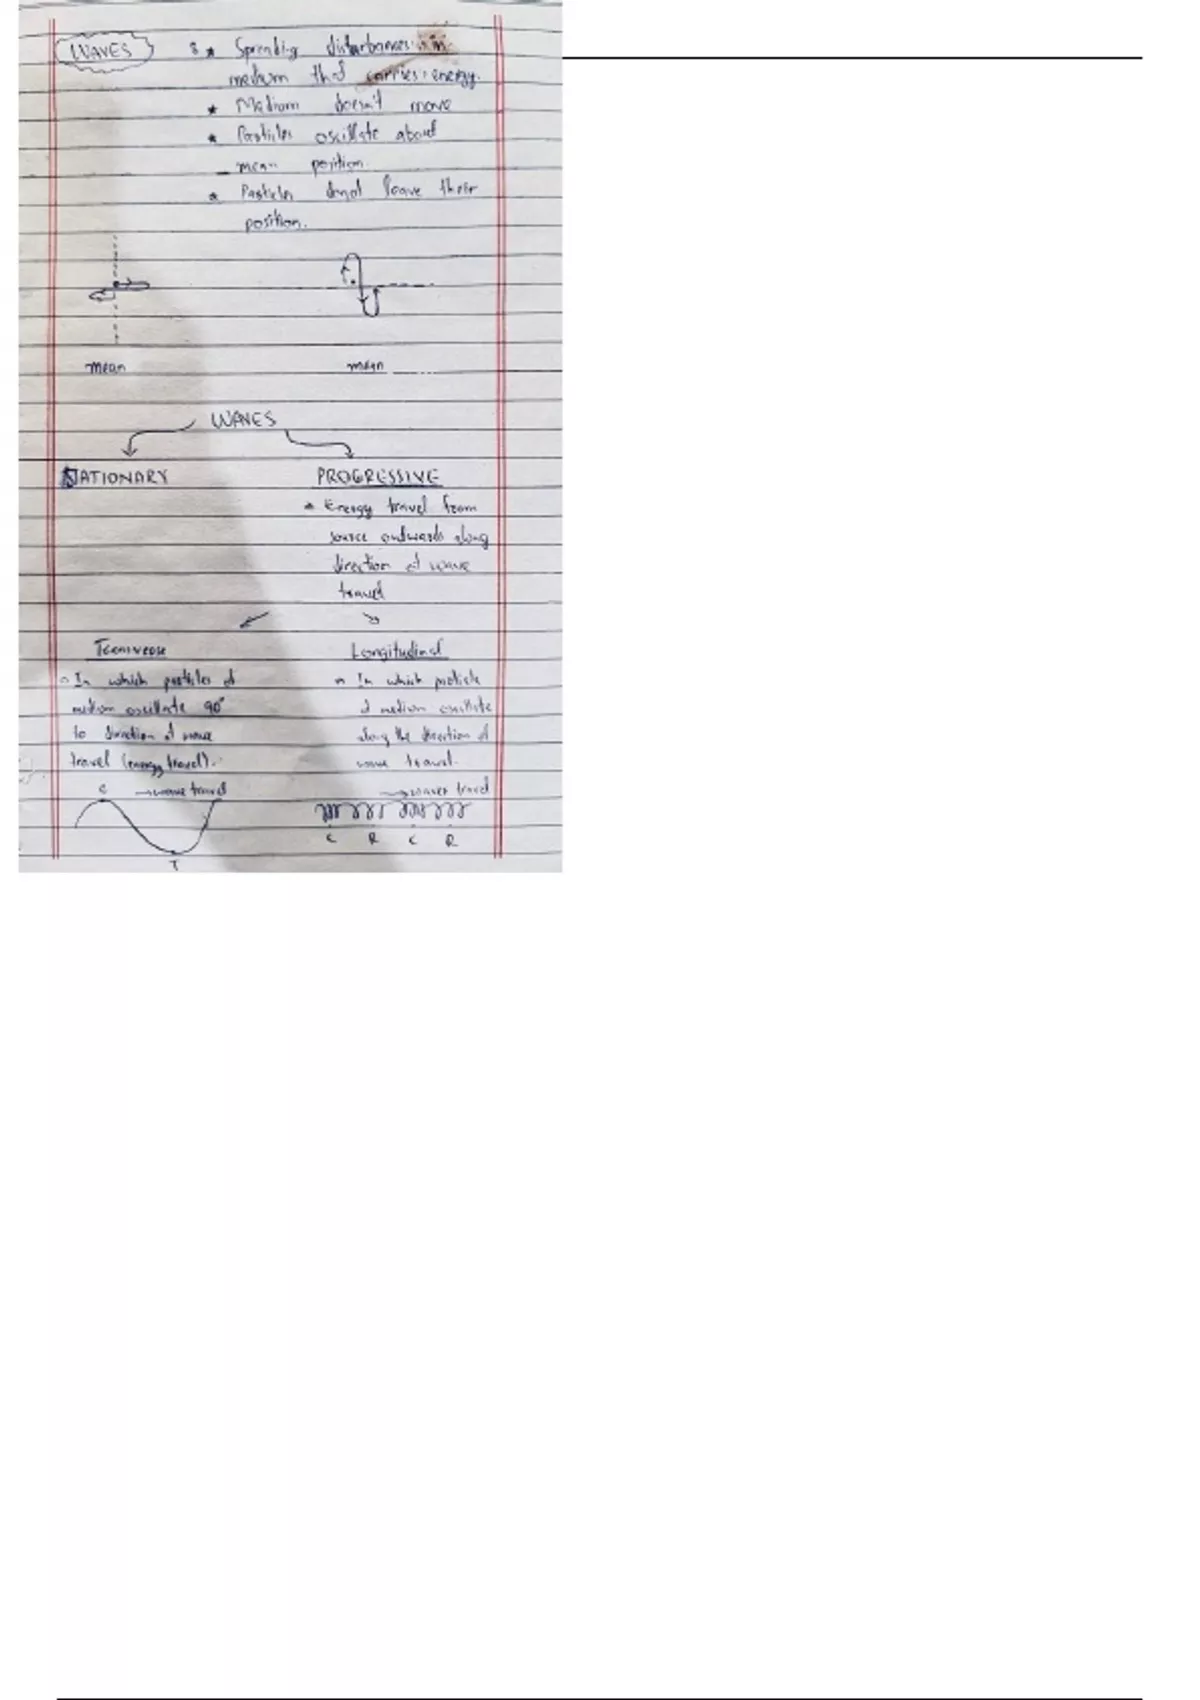 WAVES : * Spreading disturbances in
medium that carries energy.
* Medium doesn't move
* Particles oscillate about
mean position.
* Particles donot leave their
position.
mean mean
WAVES
STATIONARY PROGRESSIVE
* Energy travel from
source outwards along
direction of wave
travel
Transverse Longitudinal
In which particles of
medium oscillate 90°
to direction of wave
travel (energy travel).
C → wave travel
T
In which particle
of medium oscillate
along the direction of
wave travel.
→ waves travel
C R C R